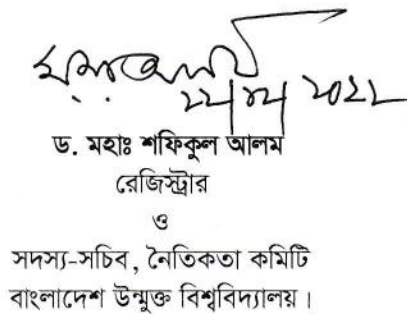 ড. মহাঃ শফিকুল আলম
রেজিস্ট্রার
ও
সদস্য-সচিব, নৈতিকতা কমিটি
বাংলাদেশ উন্মুক্ত বিশ্ববিদ্যালয়।